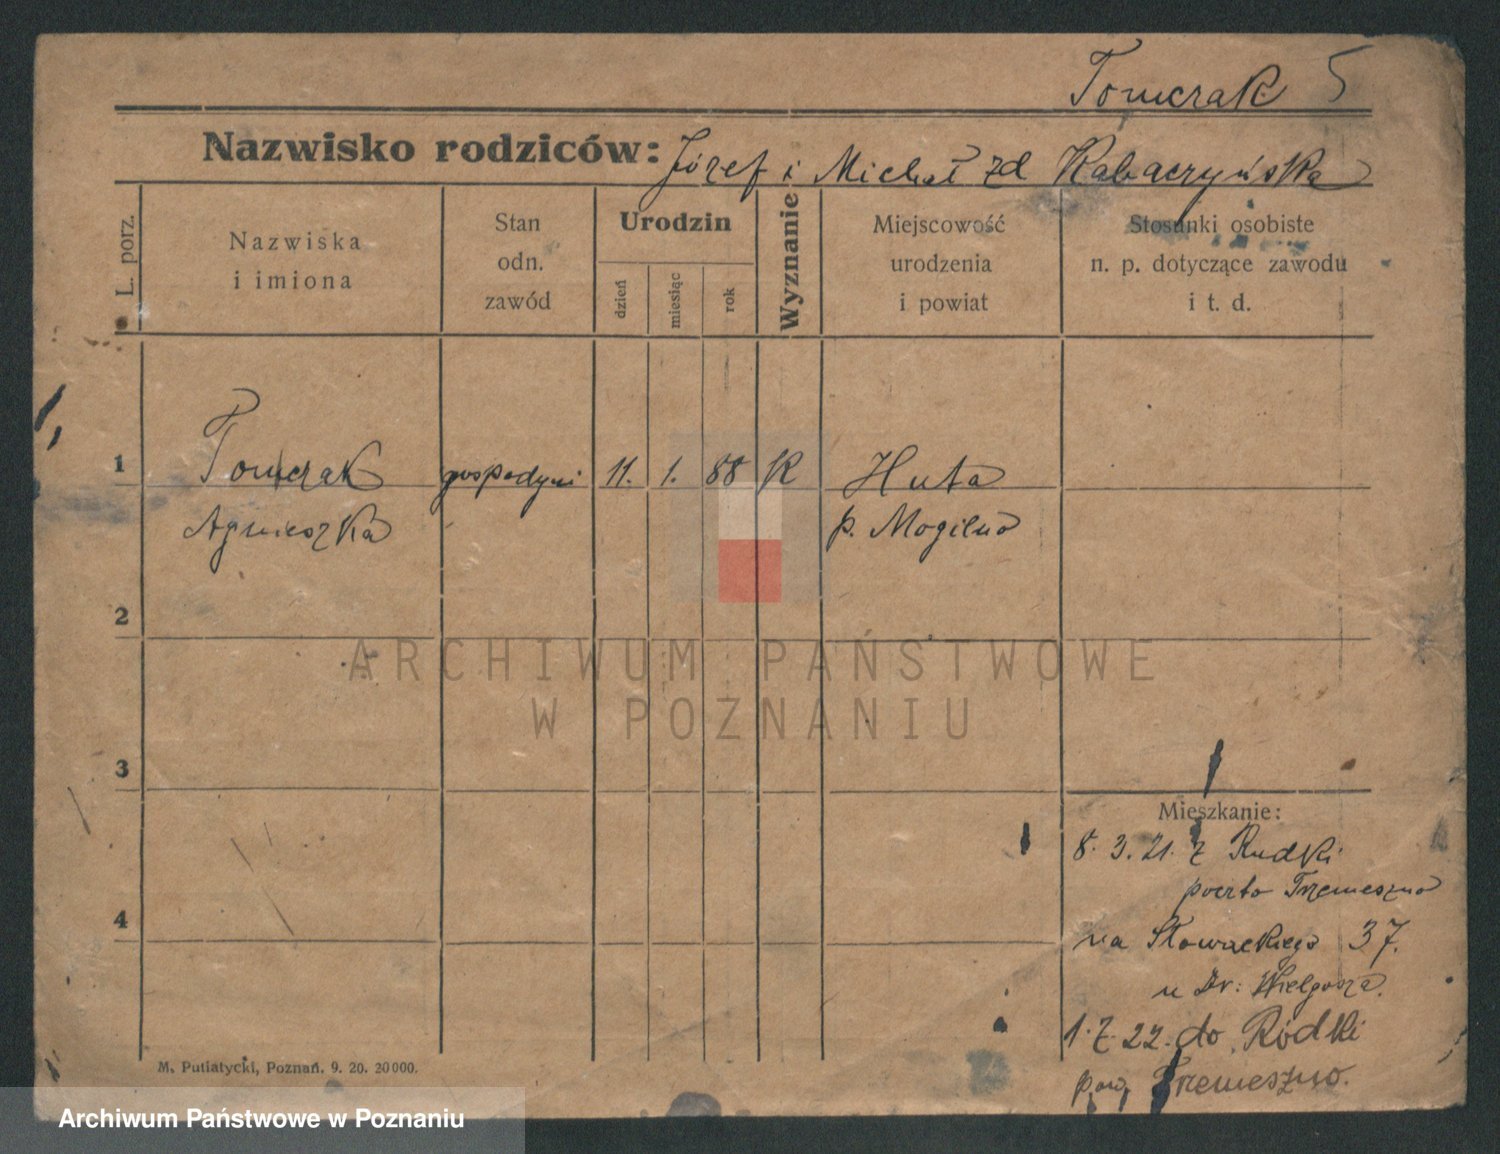 Tomczak 5
Nazwisko rodziców: Józef i Michal zd Kabaczyńska
L. porz.
Nazwiska
i imiona
Stan
odn.
zawód
Urodzin
dzień
miesiąc
rok
Wyznanie
Miejscowość
urodzenia
i powiat
Stosunki osobiste
n. p. dotyczące zawodu
i t. d.
1 Tomczak gospodyni 11. 1. 88 K Huta
Agnieszka p. Mogilno
2
ARCHIWUM PAŃSTWOWE
W POZNANIU
3
Mieszkanie:
8. 3. 21. z Rudki
poczta Trzemeszno
4
na Słowackiego 37.
u Dr: Wielgosza.
1. 7. 22. do Ródki
pow. Trzemeszno.
M. Putiatycki, Poznań. 9. 20. 20000.
Archiwum Państwowe w Poznaniu